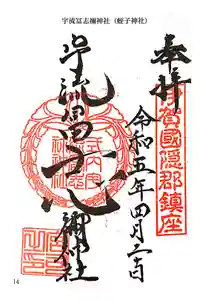 宇流冨志禰神社（蛭子神社）
奉拝
伊賀國隠郡鎮座
令和五年四月二日
宇流冨志禰神社
式内
14